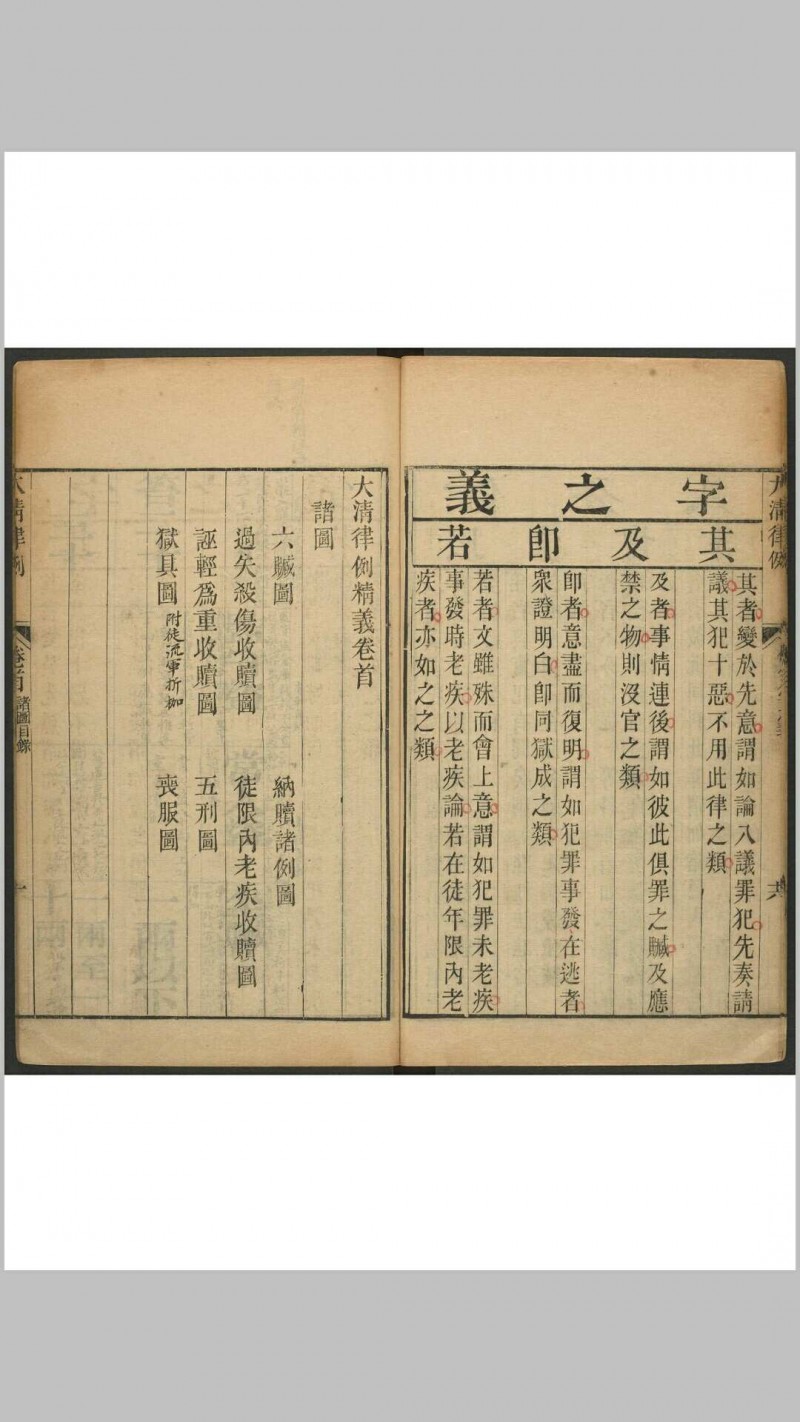 大清律例
字之義
其及即若
其者變於先意謂如論八議罪犯先奏請
議其犯十惡不用此律之類
及者事情連後謂如彼此俱罪之贓及應
禁之物則沒官之類
即者意盡而復明謂如犯罪事發在逃者
衆證明白即同獄成之類
若者文雖殊而會上意謂如犯罪未老疾
事發時老疾以老疾論若在徒年限內老
疾者亦如之之類
六
大清律例精義卷首
諸圖
六贓圖 納贖諸例圖
過失殺傷收贖圖 徒限內老疾收贖圖
誣輕爲重收贖圖 五刑圖
獄具圖 附徒流軍折枷 喪服圖
大清律例 卷首 諸圖目錄 一